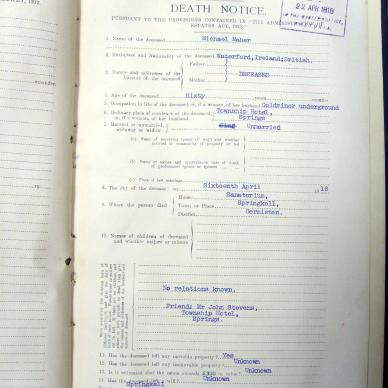 DEATH NOTICE.
22 APR 1918
PURSUANT TO THE PROVISIONS CONTAINED IN "THE
ESTATES ACT, 1913."
1. Name of the deceased Michael Maher
2. Birthplace and Nationality of the deceased Waterford, Ireland; British.
3. Names and addresses of the Parents of the deceased
Father
Mother
DECEASED
4. Age of the deceased Sixty years months
5. Occupation in life of the deceased or, if a woman, of her husband Goldminer underground
6. Ordinary place of residence of the deceased, or, if a woman, of her husband Township Hotel,
Springs
7. Married or unmarried, widower or widow Unmarried
(a) Name of surviving spouse (if any) and whether married in community of property or not
(b) Name or names and approximate date of death of predeceased spouse or spouses
(c) Place of last marriage
8. The day of the decease: on Sixteenth April 1918
9. Where the person died
House Sanatorium,
Town or Place Springkell,
District Germiston.
10. Names of children of deceased and whether majors or minors
No relations known.
Friend: Mr John Stevens,
Township Hotel,
Springs.
11. Has the deceased left any movable property? Yes
12. Has the deceased left any immovable property? Unknown
13. Is it estimated that the estate exceeds £300 in value? Unknown
14. Has the deceased left a will? Unknown
Springkell